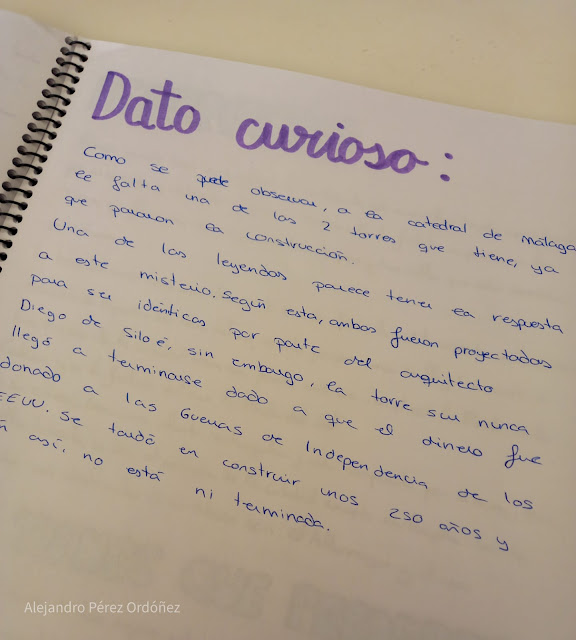 Dato curioso:
Como se puede observar, a la catedral de Málaga
le falta una de las 2 torres que tiene, ya
que pararon la construcción.
Una de las leyendas parece tener la respuesta
a este misterio. Según esta, ambas fueron proyectadas
para ser idénticas por parte del arquitecto
Diego de Siloé, sin embargo, la torre sur nunca
llegó a terminarse dado a que el dinero fue
donado a las Guerras de Independencia de los
EEUU. Se tardó en construir unos 250 años y
así, no está ni terminada.
Alejandro Pérez Ordóñez